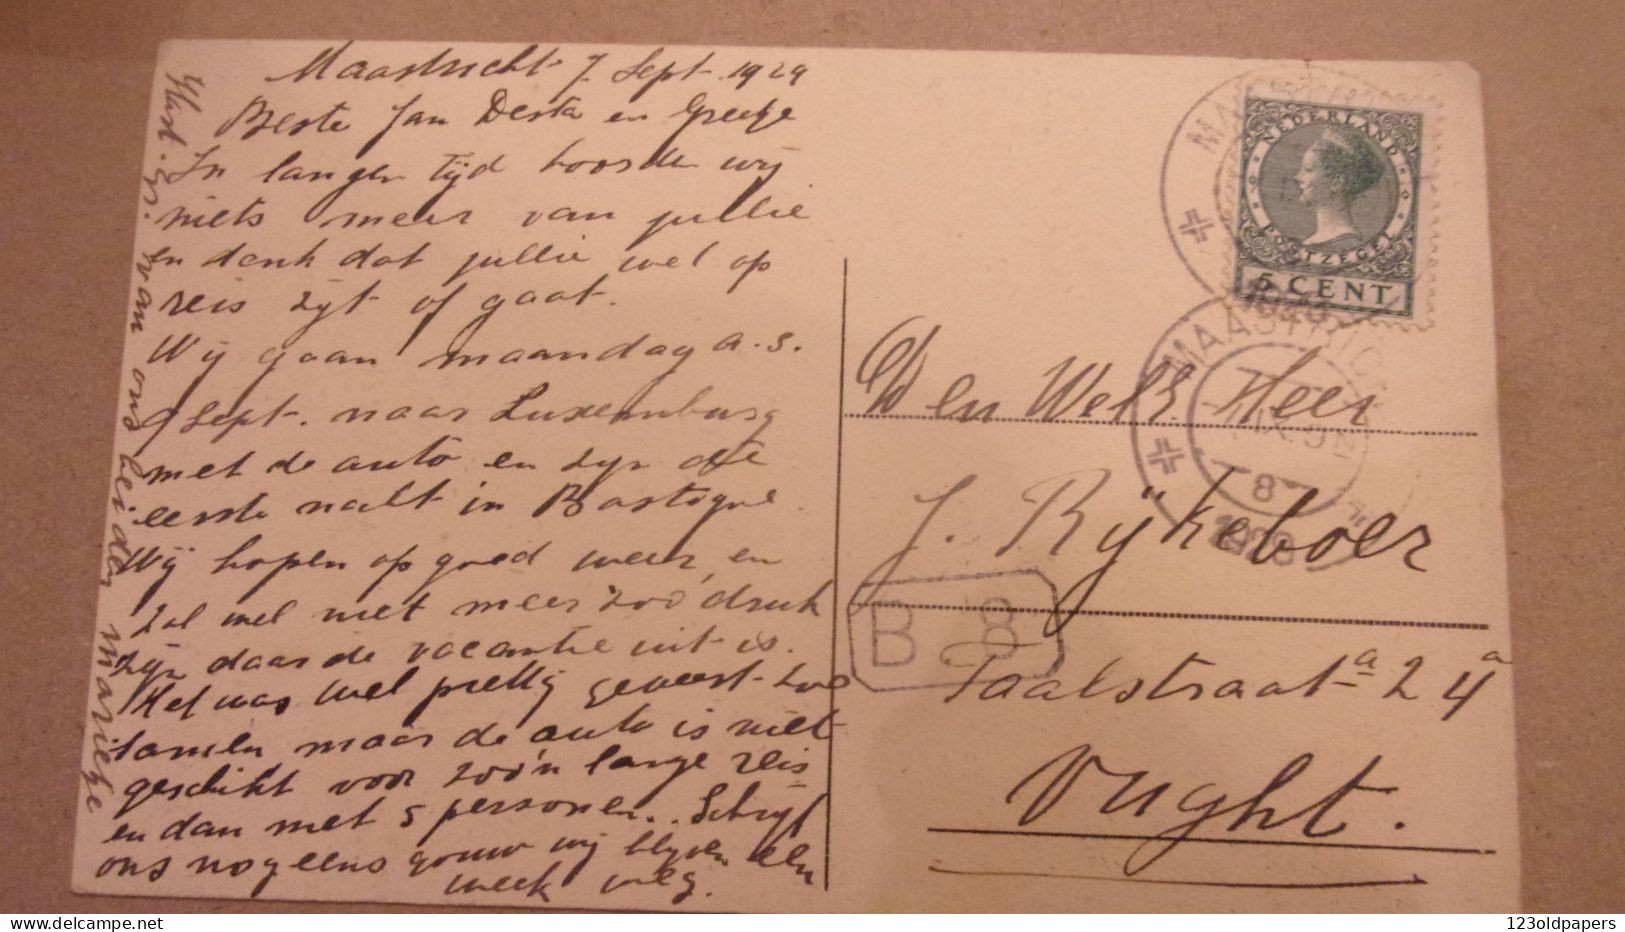 Maastricht 7 Sept. 1929
Beste Jan Desta en Greetje
In langen tijd hoorden wij
niets meer van jullie
en denk dat jullie wel op
reis zijt of gaat.
Wij gaan maandag a.s.
9 Sept. naar Luxemburg
met de auto en zijn de
eerste nacht in Bastogne.
Wij hopen op goed weer, en
zal wel niet meer zoo druk
zijn daar de vacantie uit is.
Het was wel prettig geweest zoo
samen maar de auto is niet
geschikt voor zoo'n lange reis
en dan met 5 personen. Schrijf
ons nog eens gouw wij blijven een
week weg.
van ons beiden Marietje
NEDERLAND
POSTZEGEL
5 CENT
MAASTRICHT
8
Den WelE. Heer
J. Rijkeboer
B 8
Taalstraat a 24a
Vught.
123oldpapers